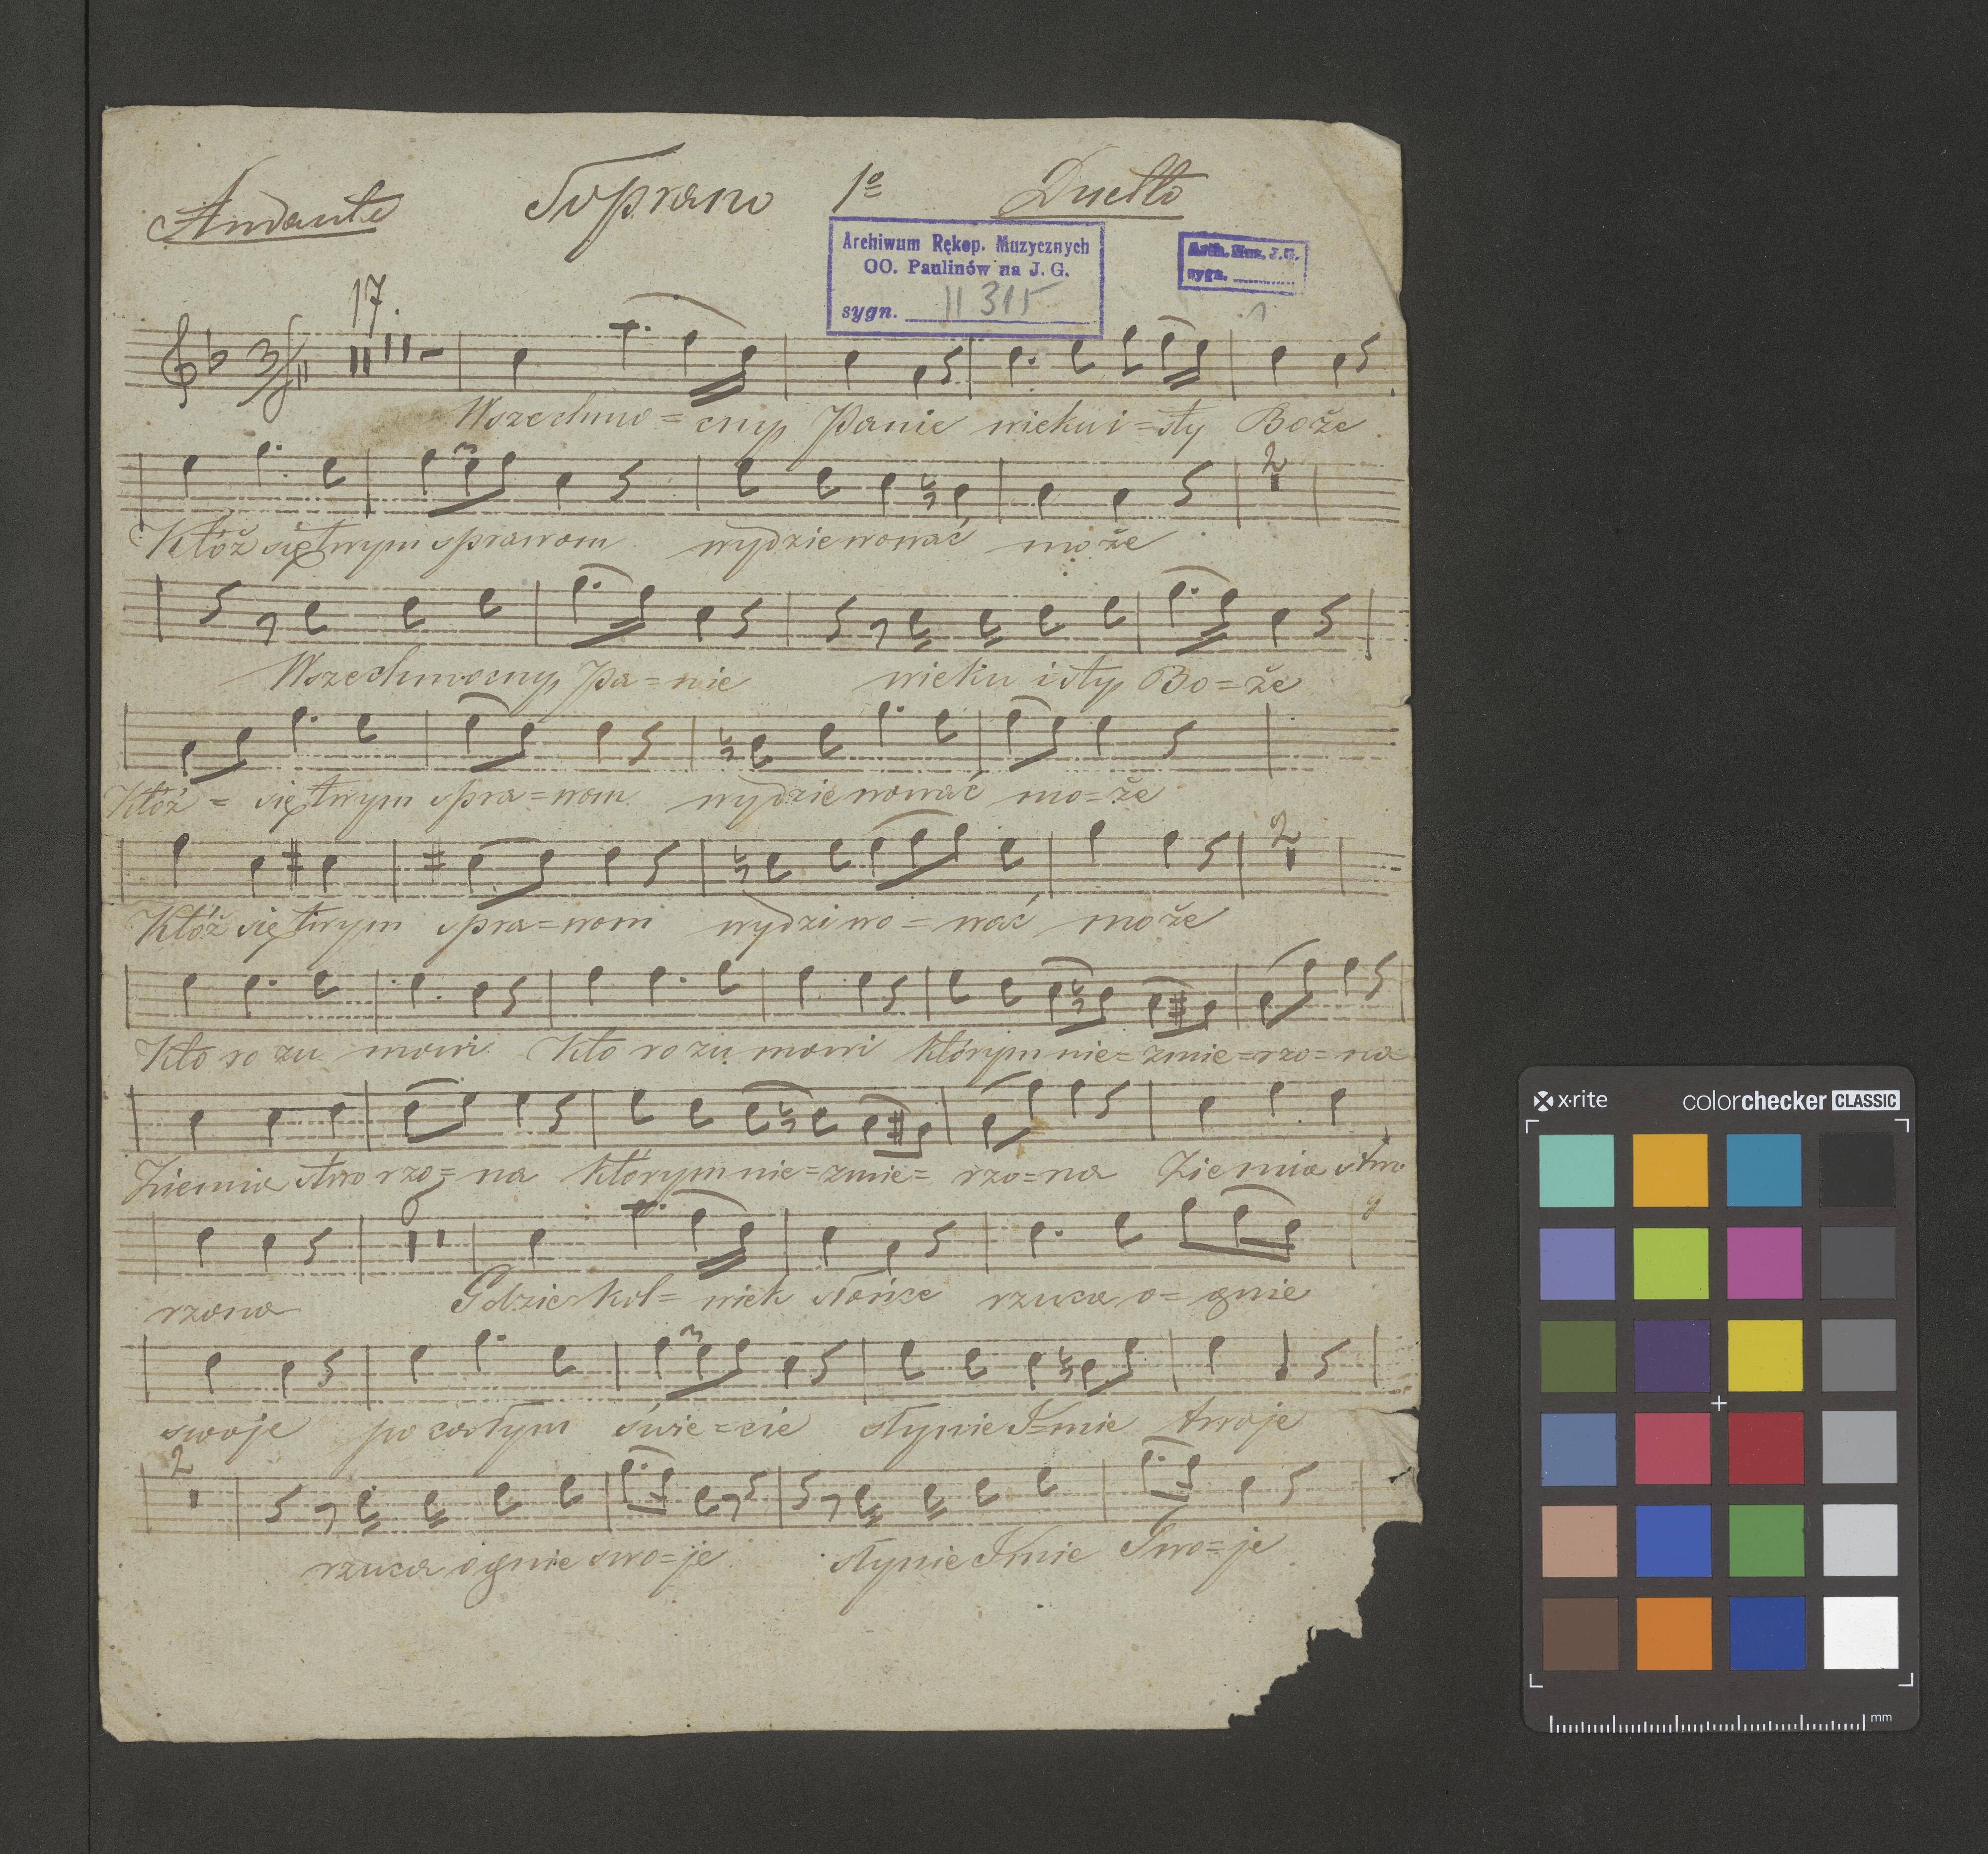 Andante Soprano 1o Duetto
Archiwum Rękop. Muzycznych
OO. Paulinów na J. G.
sygn. II 315
Arch. Muz. J.G.
sygn.
17.
Wszechmo=cny Panie wiekui=sty Boże
3 2
Któż się twym sprawom wydziwować może
Wszechmocny Pa=nie wieku isty Bo=że
Któż = się twym spra=wom wydziwować mo=że
2
Któż się twym spra=wom wydziwo=wać może
Kto rozu mowi Kto rozu mowi którym nie=zmie=rzo=na
Ziemia stwo rzo=na którym nie=zmie=rzo=na Ziemia stwo
6
rzona Gdzie kol=wiek słońce rzuca o=gnie
3
swoje po całym świe=cie słynie I=mie twoje
2
rzuca ognie swo=je słynie Imie Two=je
x·rite colorchecker CLASSIC
mm